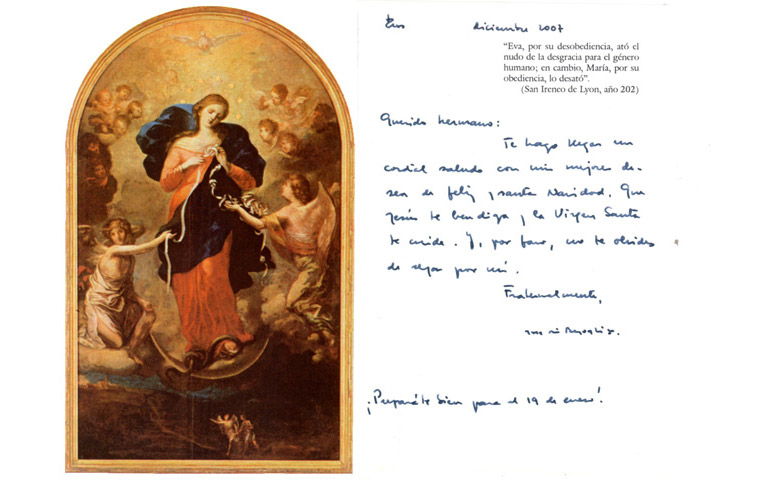 diciembre 2007
“Eva, por su desobediencia, ató el
nudo de la desgracia para el género
humano; en cambio, María, por su
obediencia, lo desató”.
(San Ireneo de Lyon, año 202)
Querido hermano:
Te hago llegar un
cordial saludo con mis mejores de-
seos de feliz y santa Navidad. Que
Jesús te bendiga y la Virgen Santa
te cuide. Y, por favor, no te olvides
de rezar por mí.
Fraternalmente,
¡Preparáte bien para el 19 de enero!